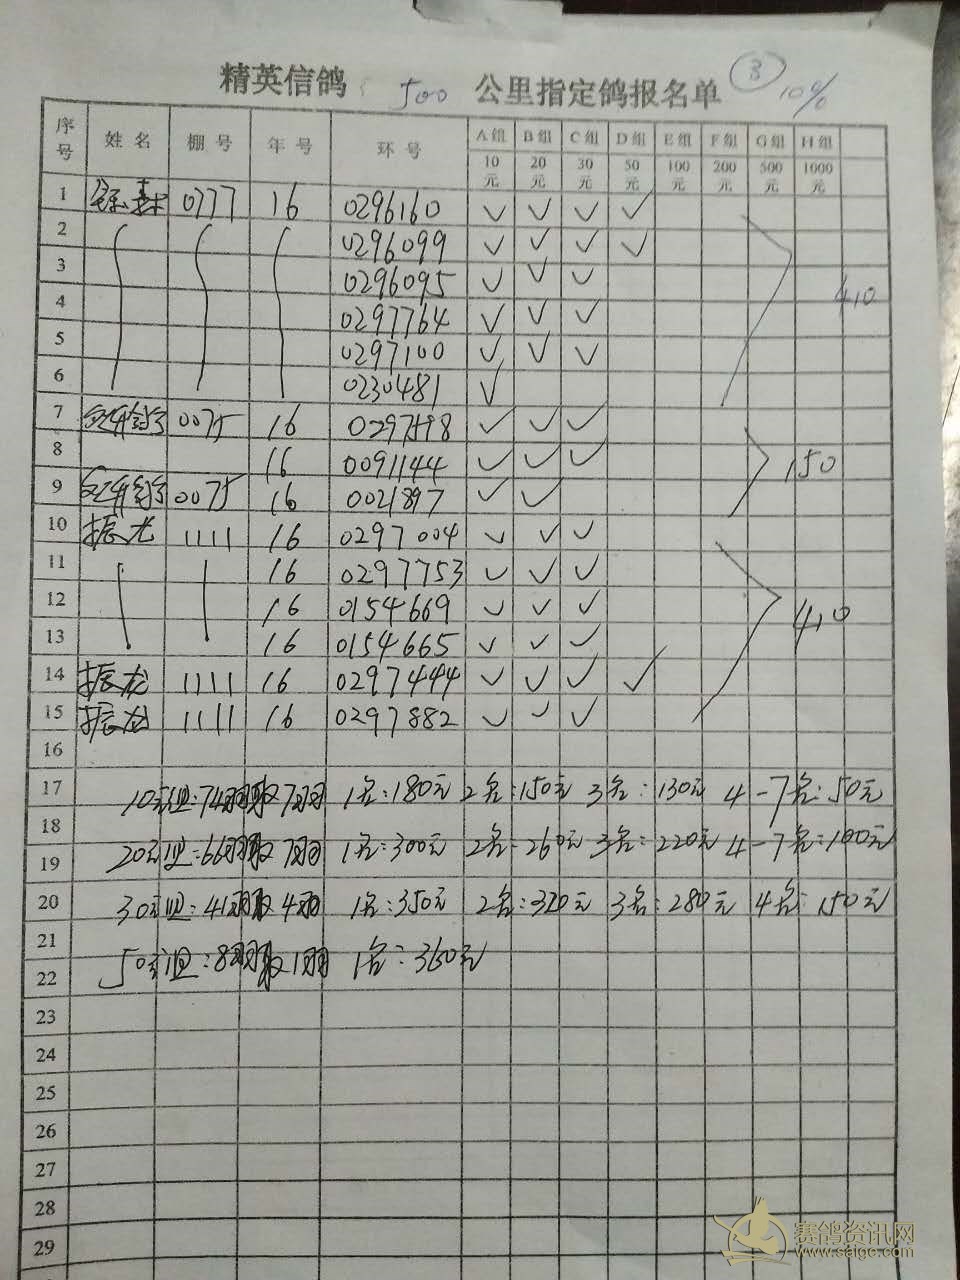 精英信鸽 500 公里指定鸽报名单 3 10%
序号 姓名 棚号 年号 环号 A组 B组 C组 D组 E组 F组 G组 H组
10元 20元 30元 50元 100元 200元 500元 1000元
1 0777 16 0296160 ✓ ✓ ✓ ✓
2 0296099 ✓ ✓ ✓ ✓
3 0296095 ✓ ✓ ✓
4 0297764 ✓ ✓ ✓ 410
5 0297100 ✓ ✓ ✓
6 0230481 ✓
7 0075 16 0297598 ✓ ✓ ✓
8 16 0091144 ✓ ✓ ✓ 150
9 0075 16 0021897 ✓ ✓
10 振龙 1111 16 0297004 ✓ ✓ ✓
11 16 0297753 ✓ ✓ ✓
12 16 0154669 ✓ ✓ ✓ 410
13 16 0154665 ✓ ✓ ✓
14 振龙 1111 16 0297444 ✓ ✓ ✓ ✓
15 振龙 1111 16 0297882 ✓ ✓ ✓
16
17 10元组:74羽取7羽 1名:180元 2名:150元 3名:130元 4-7名:50元
18
19 20元组:66羽取7羽 1名:300元 2名:260元 3名:220元 4-7名:100元
20 30元组:41羽取4羽 1名:350元 2名:320元 3名:280元 4名:150元
21
22 50元组:8羽取1羽 1名:360元
23
24
25
26
27
28
29
赛鸽资讯网
www.saige.com